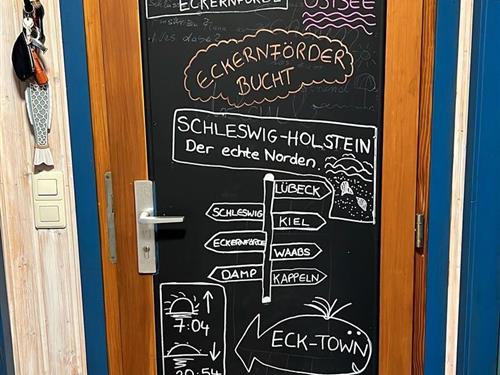 ECKERNFÖRDE
OSTSEE
ECKERNFÖRDER
BUCHT
SCHLESWIG-HOLSTEIN
Der echte Norden.
LÜBECK
SCHLESWIG
KIEL
ECKERNFÖRDE
WAABS
DAMP
KAPPELN
7:04
ECK-TOWN
20:54